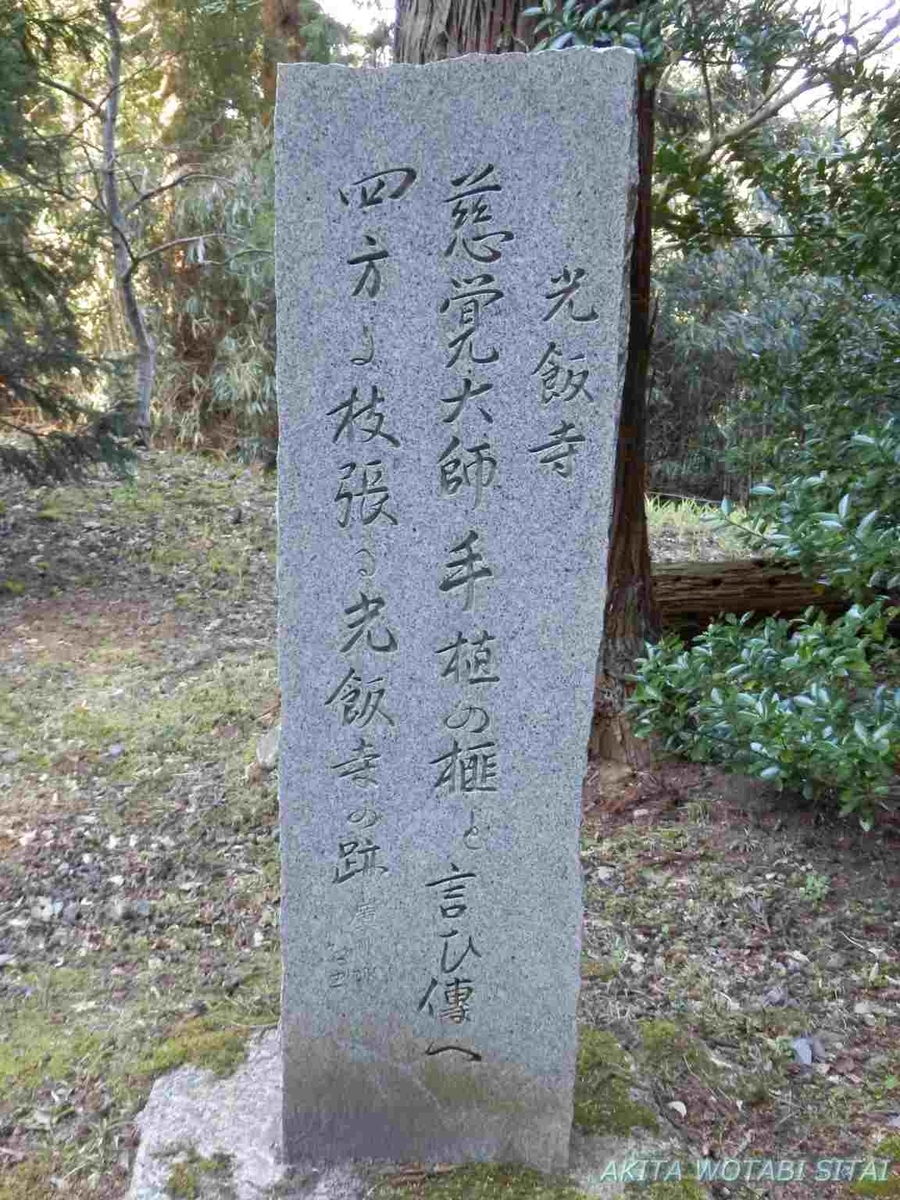 光飯寺
慈覚大師手植の榧と言ひ傳へ
四方に枝張る光飯寺の跡
AKITA WOTABI SITAI